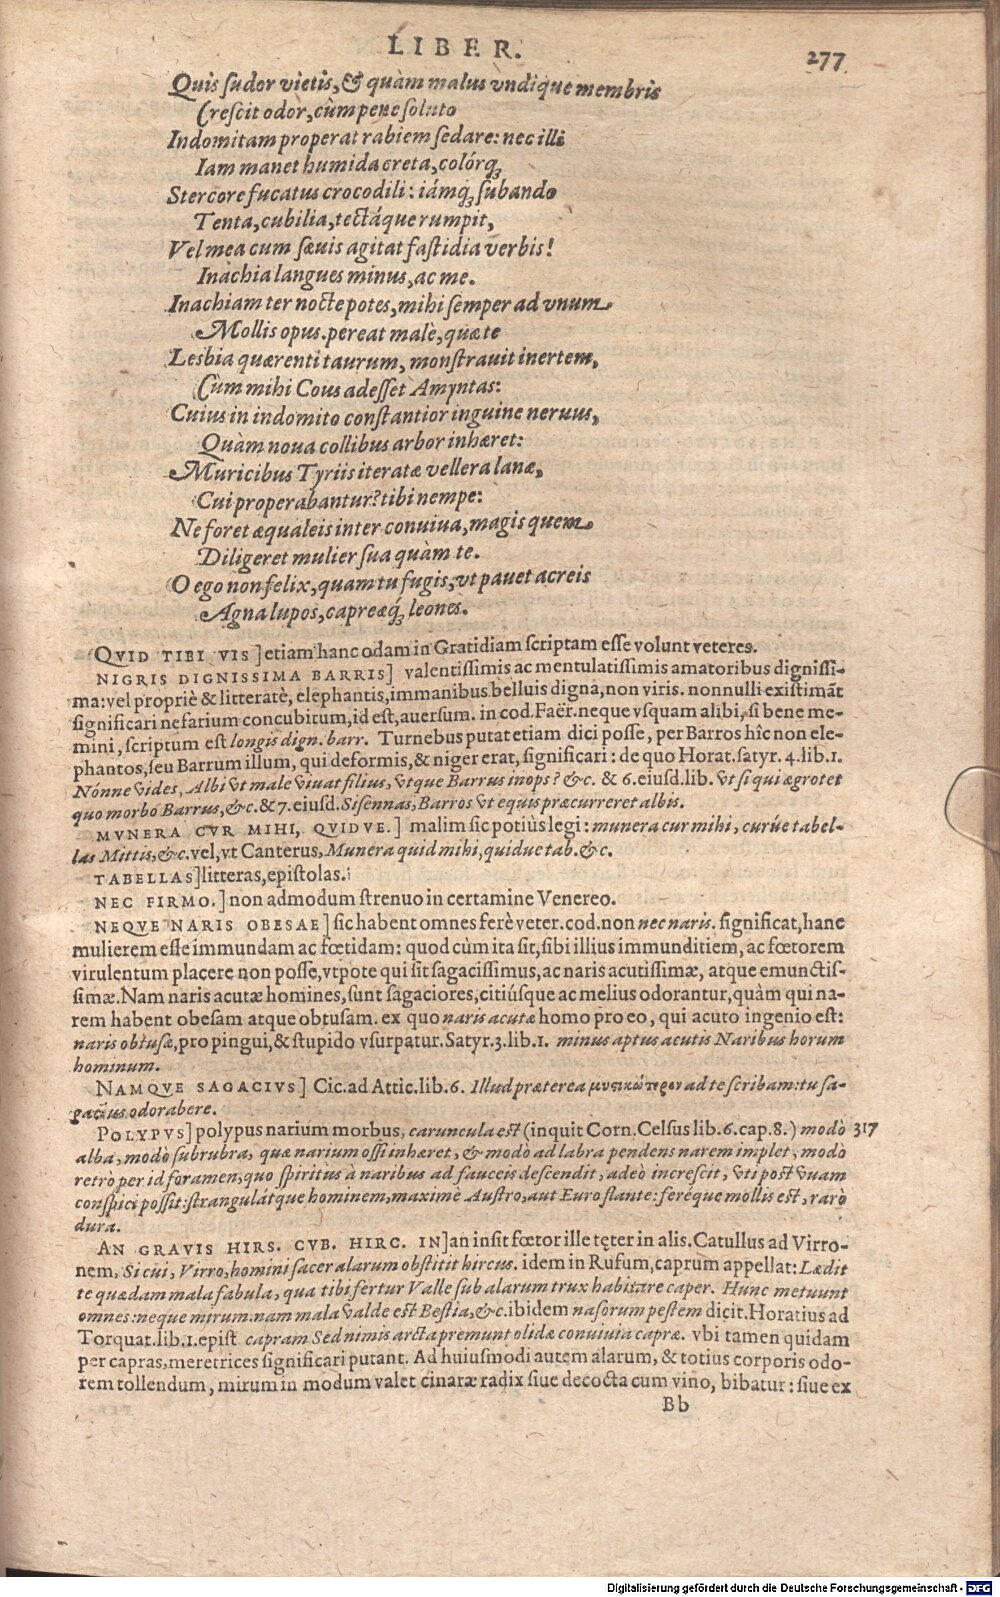 LIBER.
277
Quis sudor vietis, & quàm malus vndique membris
Crescit odor, cùm pene soluto
Indomitam properat rabiem sedare: nec illi
Iam manet humida creta, colórq́ꝫ
Stercore fucatus crocodili: iámq́ꝫ subando
Tenta, cubilia, tectáque rumpit,
Vel mea cum sæuis agitat fastidia verbis!
Inachia langues minus, ac me.
Inachiam ter nocte potes, mihi semper ad vnum
Mollis opus. pereat malè, quæ te
Lesbia quærenti taurum, monstrauit inertem,
Cùm mihi Cous adesset Amyntas:
Cuius in indomito constantior inguine neruus,
Quàm noua collibus arbor inhæret:
Muricibus Tyriis iteratæ vellera lanæ,
Cui properabantur? tibi nempe:
Ne foret æqualeis inter conuiua, magis quem
Diligeret mulier sua quàm te.
O ego non felix, quam tu fugis, vt pauet acreis
Agna lupos, capreæq́ꝫ leones.
QVID TIBI VIS] etiam hanc odam in Gratidiam scriptam esse volunt veteres.
NIGRIS DIGNISSIMA BARRIS] valentissimis ac mentulatissimis amatoribus dignissi-
ma: vel propriè & litteratè, elephantis, immanibus belluis digna, non viris. nonnulli existimãt
significari nefarium concubitum, id est, auersum. in cod. Faër. neque vsquam alibi, si bene me-
mini, scriptum est longis dign. barr. Turnebus putat etiam dici posse, per Barros hîc non ele-
phantos, seu Barrum illum, qui deformis, & niger erat, significari: de quo Horat. satyr. 4. lib. 1.
Nónne vides, Albi vt male viuat filius, vtque Barrus inops? &c. & 6. eiusd. lib. vt si qui ægrotet
quo morbo Barrus, &c. & 7. eiusd. Sisennas, Barros vt equis præcurreret albis.
MVNERA CVR MIHI, QVIDVE.] malim sic potiùs legi: munera cur mihi, curúe tabel-
las Mittis, &c. vel, vt Canterus, Munera quid mihi, quidue tab. &c.
TABELLAS] litteras, epistolas.
NEC FIRMO.] non admodum strenuo in certamine Venereo.
NEQVE NARIS OBESAE] sic habent omnes ferè veter. cod. non nec naris. significat, hanc
mulierem esse immundam ac fœtidam: quod cùm ita sit, sibi illius immunditiem, ac fœtorem
virulentum placere non posse, vtpote qui sit sagacissimus, ac naris acutissimæ, atque emunctis-
simæ. Nam naris acutæ homines, sunt sagaciores, citiúsque ac melius odorantur, quàm qui na-
rem habent obesam atque obtusam. ex quo naris acutæ homo pro eo, qui acuto ingenio est:
naris obtusæ, pro pingui, & stupido vsurpatur. Satyr. 3. lib. 1. minus aptus acutis Naribus horum
hominum.
NAMQVE SAGACIVS] Cic. ad Attic. lib. 6. Illud præterea μυστικώτερον ad te scribam: tu sa-
gacius odorabere.
POLYPVS] polypus narium morbus, caruncula est (inquit Corn. Celsus lib. 6. cap. 8.) modò 317
alba, modò subrubra, quæ narium ossi inhæret, & modò ad labra pendens narem implet, modò
retro per id foramen, quo spiritus à naribus ad fauceis descendit, adeò increscit, vti post vuam
conspici possit: strangulátque hominem, maximè Austro, aut Euro flante: feréque mollis est, rarò
dura.
AN GRAVIS HIRS. CVB. HIRC. IN] an insit fœtor ille teter in alis. Catullus ad Virro-
nem, Si cui, Virro, homini sacer alarum obstitit hircus. idem in Rufum, caprum appellat: Lædit
te quædam mala fabula, qua tibi fertur Valle sub alarum trux habitare caper. Hunc metuunt
omnes: neque mirum: nam mala valde est Bestia, &c. ibidem nasorum pestem dicit. Horatius ad
Torquat. lib. 1. epist. capram Sed nimis arcta premunt olidæ conuiuia capræ. vbi tamen quidam
per capras, meretrices significari putant. Ad huiusmodi autem alarum, & totius corporis odo-
rem tollendum, mirum in modum valet cinaræ radix siue decocta cum vino, bibatur: siue ex
Bb
Digitalisierung gefördert durch die Deutsche Forschungsgemeinschaft - DFG